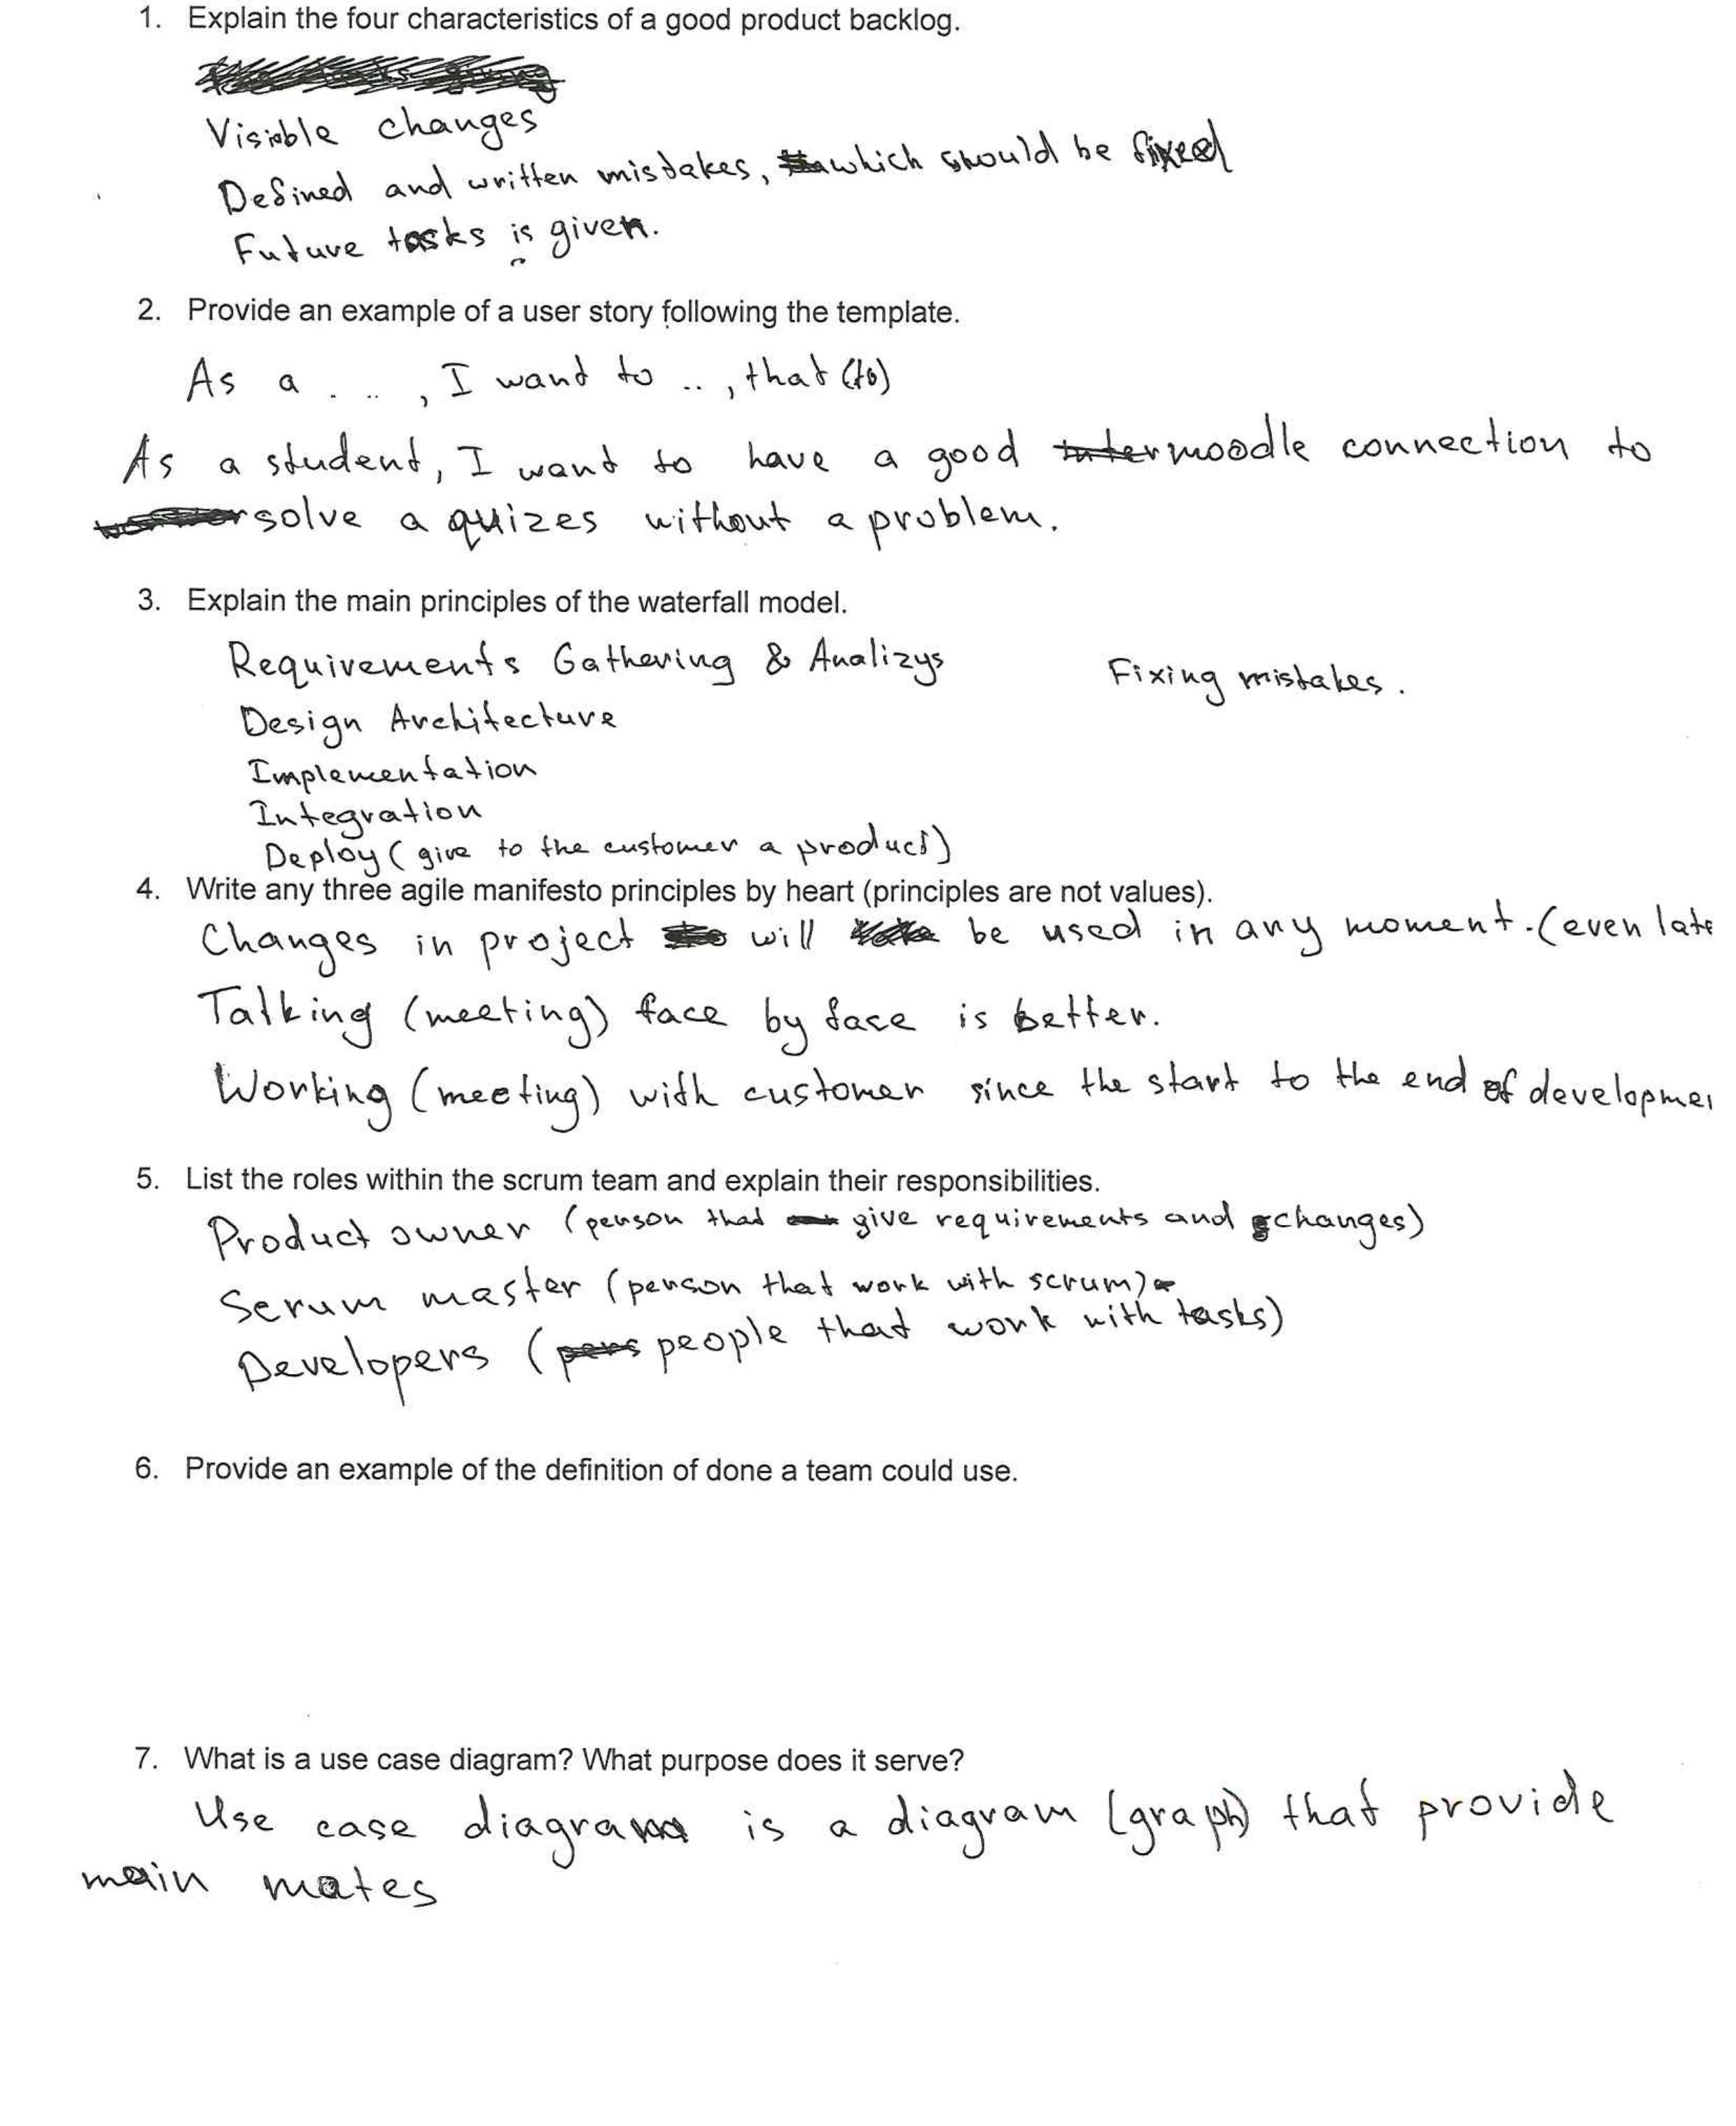 1. Explain the four characteristics of a good product backlog.
Visible changes
Defined and written mistakes, which should be fixed
Future tasks is given.
2. Provide an example of a user story following the template.
As a . .. , I want to .. , that (to)
As a student, I want to have a good moodle connection to
solve a quizes without a problem.
3. Explain the main principles of the waterfall model.
Requirements Gathering & Analizys
Fixing mistakes.
Design Architecture
Implementation
Integration
Deploy (give to the customer a product)
4. Write any three agile manifesto principles by heart (principles are not values).
Changes in project will be used in any moment. (even late
Talking (meeting) face by face is better.
Working (meeting) with customer since the start to the end of developmen
5. List the roles within the scrum team and explain their responsibilities.
Product owner (person that give requirements and changes)
Scrum master (person that work with scrum)
Developers (people that work with tasks)
6. Provide an example of the definition of done a team could use.
7. What is a use case diagram? What purpose does it serve?
Use case diagram is a diagram (graph) that provide
main mates